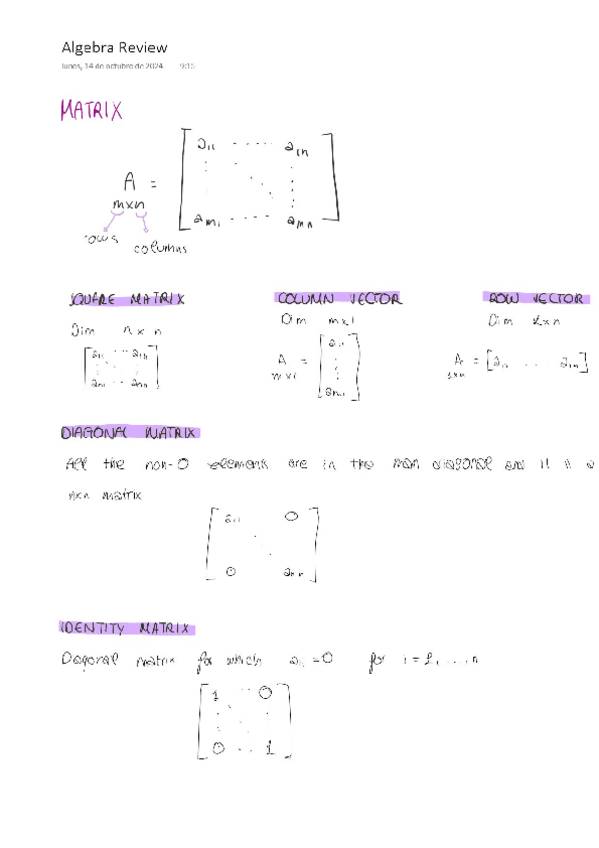 Algebra Review
lunes, 14 de octubre de 2024 9:15
MATRIX
A =
mxn
rows
columns
a11 ---- a1n
am1 ---- amn
SQUARE MATRIX
Dim n x n
a11 ... a1n
an1 ... ann
COLUMN VECTOR
Dim mx1
A =
mx1
a11
am1
ROW VECTOR
Dim 1xn
A = [a11 ... a1n]
1xn
DIAGONAL MATRIX
All the non-0 elements are in the main diagonal and it is a
nxn matrix
a11 0
0 ann
IDENTITY MATRIX
Diagonal matrix for which aii =0 for i = 1, ..., n
1 ... 0
0 ... 1